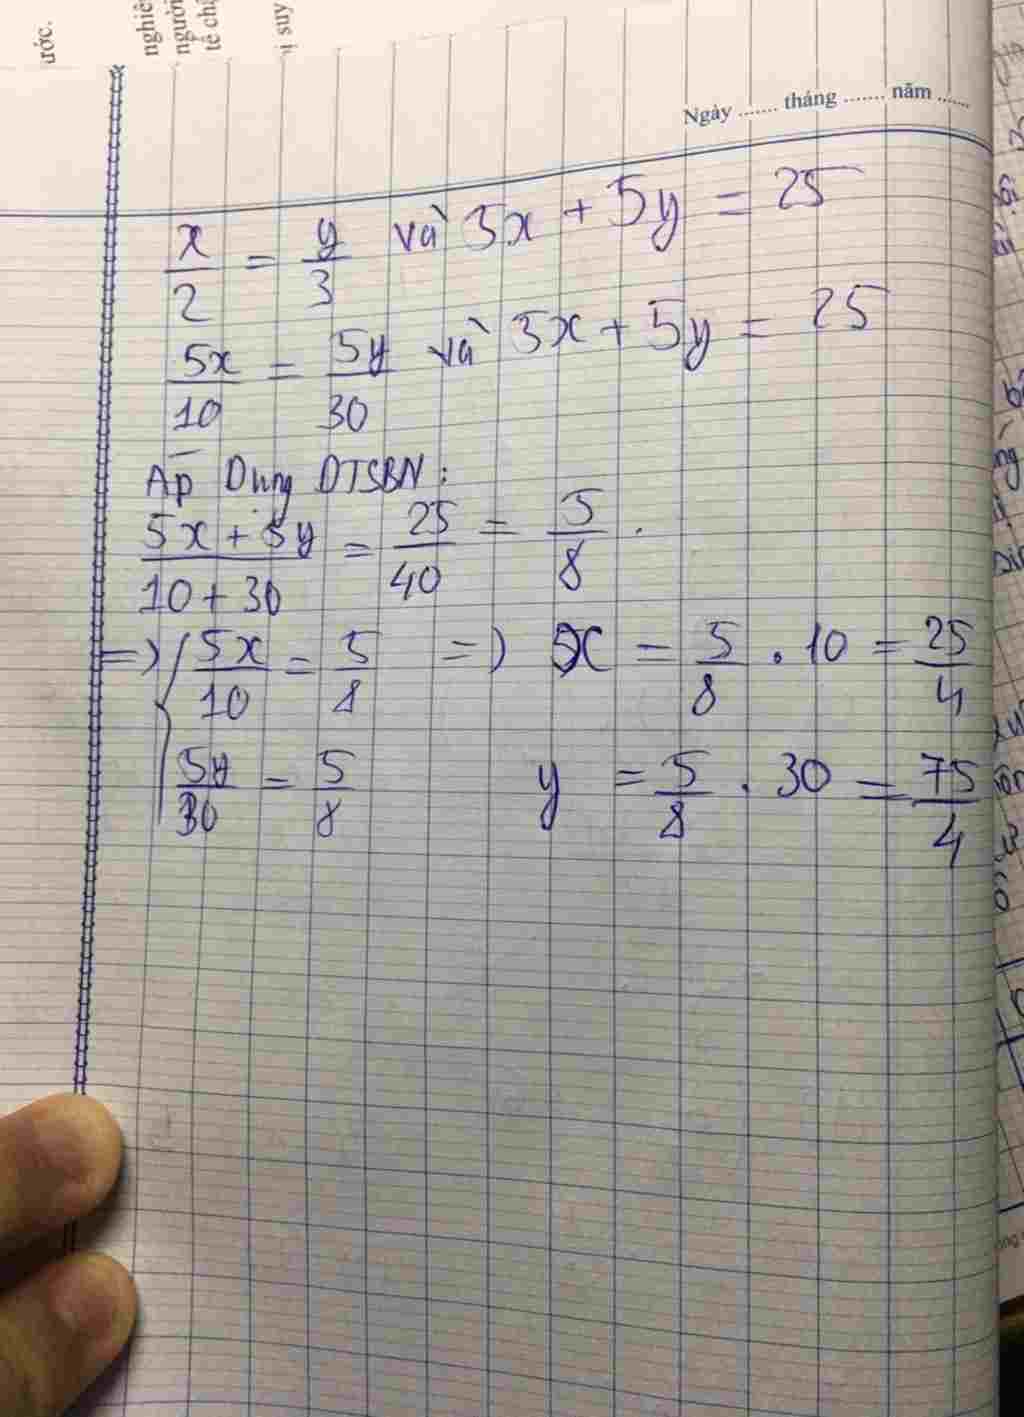 ước.
nghiê
người
tê ch
ị suy
Ngày ....... tháng ....... năm ......
x/2 = y/3 và 5x + 5y = 25
5x/10 = 5y/30 và 5x + 5y = 25
Ap Dung DTSBN:
(5x + 5y)/(10 + 30) = 25/40 = 5/8 .
=> { 5x/10 = 5/8 => x = 5/8 . 10 = 25/4
5y/30 = 5/8 y = 5/8 . 30 = 75/4